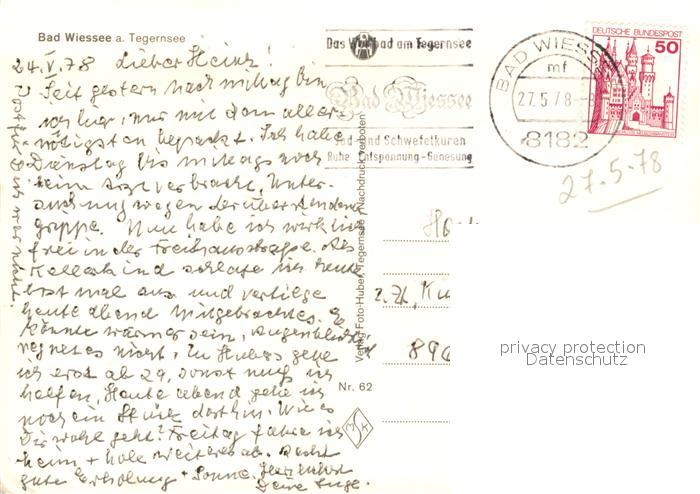 Bad Wiessee a. Tegernsee
24.V.78 Lieber Heinz!
Seit gestern nachmittag bin
ich hier, nur mit dem aller-
nötigsten bepackt. Ich habe
Dienstag bis mittags noch
beim Arzt verbracht, Unter-
suchung wegen der überstandenen
Grippe. Nun habe ich wirklich
frei in der
schlafe ich heute
erst mal aus und vertilge
heute abend Mitgebrachtes. Es
könnte wärmer sein, Augenblicklich
regnet es nicht. Zu Hubers gehe
ich erst ab 29, sonst muß ich
helfen. Heute abend gehe ich
noch ein Stück dorthin. Wie es
Dir wohl geht? Freitag fahre ich
heim + hole weiteres ab. Recht
gute Erholung + Sonne, herzlichst
Deine Inge.
Das Heilbad am Tegernsee
Bad Wiessee
Jod- und Schwefelkuren
Ruhe - Entspannung - Genesung
BAD WIESSEE
mf
27.5.78
8182
DEUTSCHE BUNDESPOST
50
27.5.78
z. Zt. Ku
896
Verlag Foto-Huber, Tegernsee / Nachdruck verboten
Nr. 62
MSK
privacy protection
Datenschutz